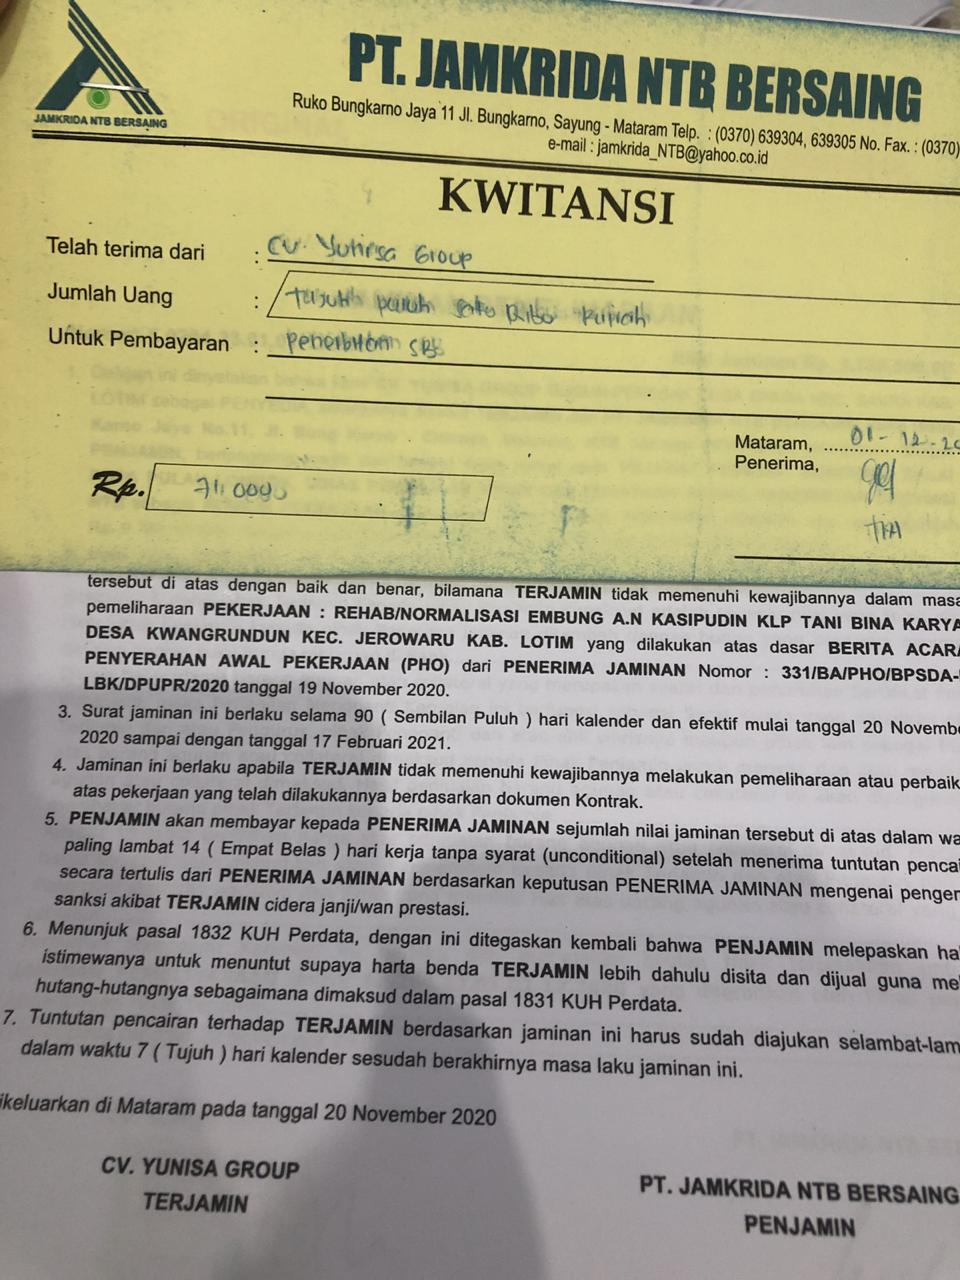 JAMKRIDA NTB BERSAING
PT. JAMKRIDA NTB BERSAING
Ruko Bungkarno Jaya 11 Jl. Bungkarno, Sayung - Mataram Telp. : (0370) 639304, 639305 No. Fax. : (0370)
e-mail : jamkrida_NTB@yahoo.co.id
KWITANSI
Telah terima dari : CV. Yunisa Group
Jumlah Uang : Tujuh puluh satu Ribu Rupiah
Untuk Pembayaran : Penerbitan
Mataram, 01-12-20
Penerima,
Rp. 71.000
TIA
tersebut di atas dengan baik dan benar, bilamana TERJAMIN tidak memenuhi kewajibannya dalam masa
pemeliharaan PEKERJAAN : REHAB/NORMALISASI EMBUNG A.N KASIPUDIN KLP TANI BINA KARYA
DESA KWANGRUNDUN KEC. JEROWARU KAB. LOTIM yang dilakukan atas dasar BERITA ACARA
PENYERAHAN AWAL PEKERJAAN (PHO) dari PENERIMA JAMINAN Nomor : 331/BA/PHO/BPSDA-
LBK/DPUPR/2020 tanggal 19 November 2020.
3. Surat jaminan ini berlaku selama 90 ( Sembilan Puluh ) hari kalender dan efektif mulai tanggal 20 Novembe
2020 sampai dengan tanggal 17 Februari 2021.
4. Jaminan ini berlaku apabila TERJAMIN tidak memenuhi kewajibannya melakukan pemeliharaan atau perbaik
atas pekerjaan yang telah dilakukannya berdasarkan dokumen Kontrak.
5. PENJAMIN akan membayar kepada PENERIMA JAMINAN sejumlah nilai jaminan tersebut di atas dalam wa
paling lambat 14 ( Empat Belas ) hari kerja tanpa syarat (unconditional) setelah menerima tuntutan pencai
secara tertulis dari PENERIMA JAMINAN berdasarkan keputusan PENERIMA JAMINAN mengenai pengen
sanksi akibat TERJAMIN cidera janji/wan prestasi.
6. Menunjuk pasal 1832 KUH Perdata, dengan ini ditegaskan kembali bahwa PENJAMIN melepaskan ha
istimewanya untuk menuntut supaya harta benda TERJAMIN lebih dahulu disita dan dijual guna me
hutang-hutangnya sebagaimana dimaksud dalam pasal 1831 KUH Perdata.
7. Tuntutan pencairan terhadap TERJAMIN berdasarkan jaminan ini harus sudah diajukan selambat-lam
dalam waktu 7 ( Tujuh ) hari kalender sesudah berakhirnya masa laku jaminan ini.
ikeluarkan di Mataram pada tanggal 20 November 2020
CV. YUNISA GROUP
TERJAMIN
PT. JAMKRIDA NTB BERSAING
PENJAMIN